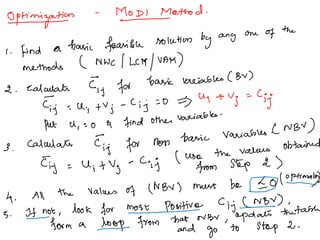 Optimization - MODI Method.
1. Find a basic feasible solution by any one of the
methods ( NWC / LCM / VAM )
2. calculate C̄ij for basic variables (BV)
C̄ij = ui + vj - Cij = 0 ⇒ ui + vj = Cij
Put u1 = 0 & find other variables.
3. Calculate C̄ij for Non basic variables ( NBV )
C̄ij = ui + vj - Cij ( use the values obtained
from Step 2 )
4. All the values of (NBV) must be ≤ 0 (optimality
5. If not, look for most Positive Cij ( NBV ),
form a loop from that NBV, update the table
and go to Step 2.